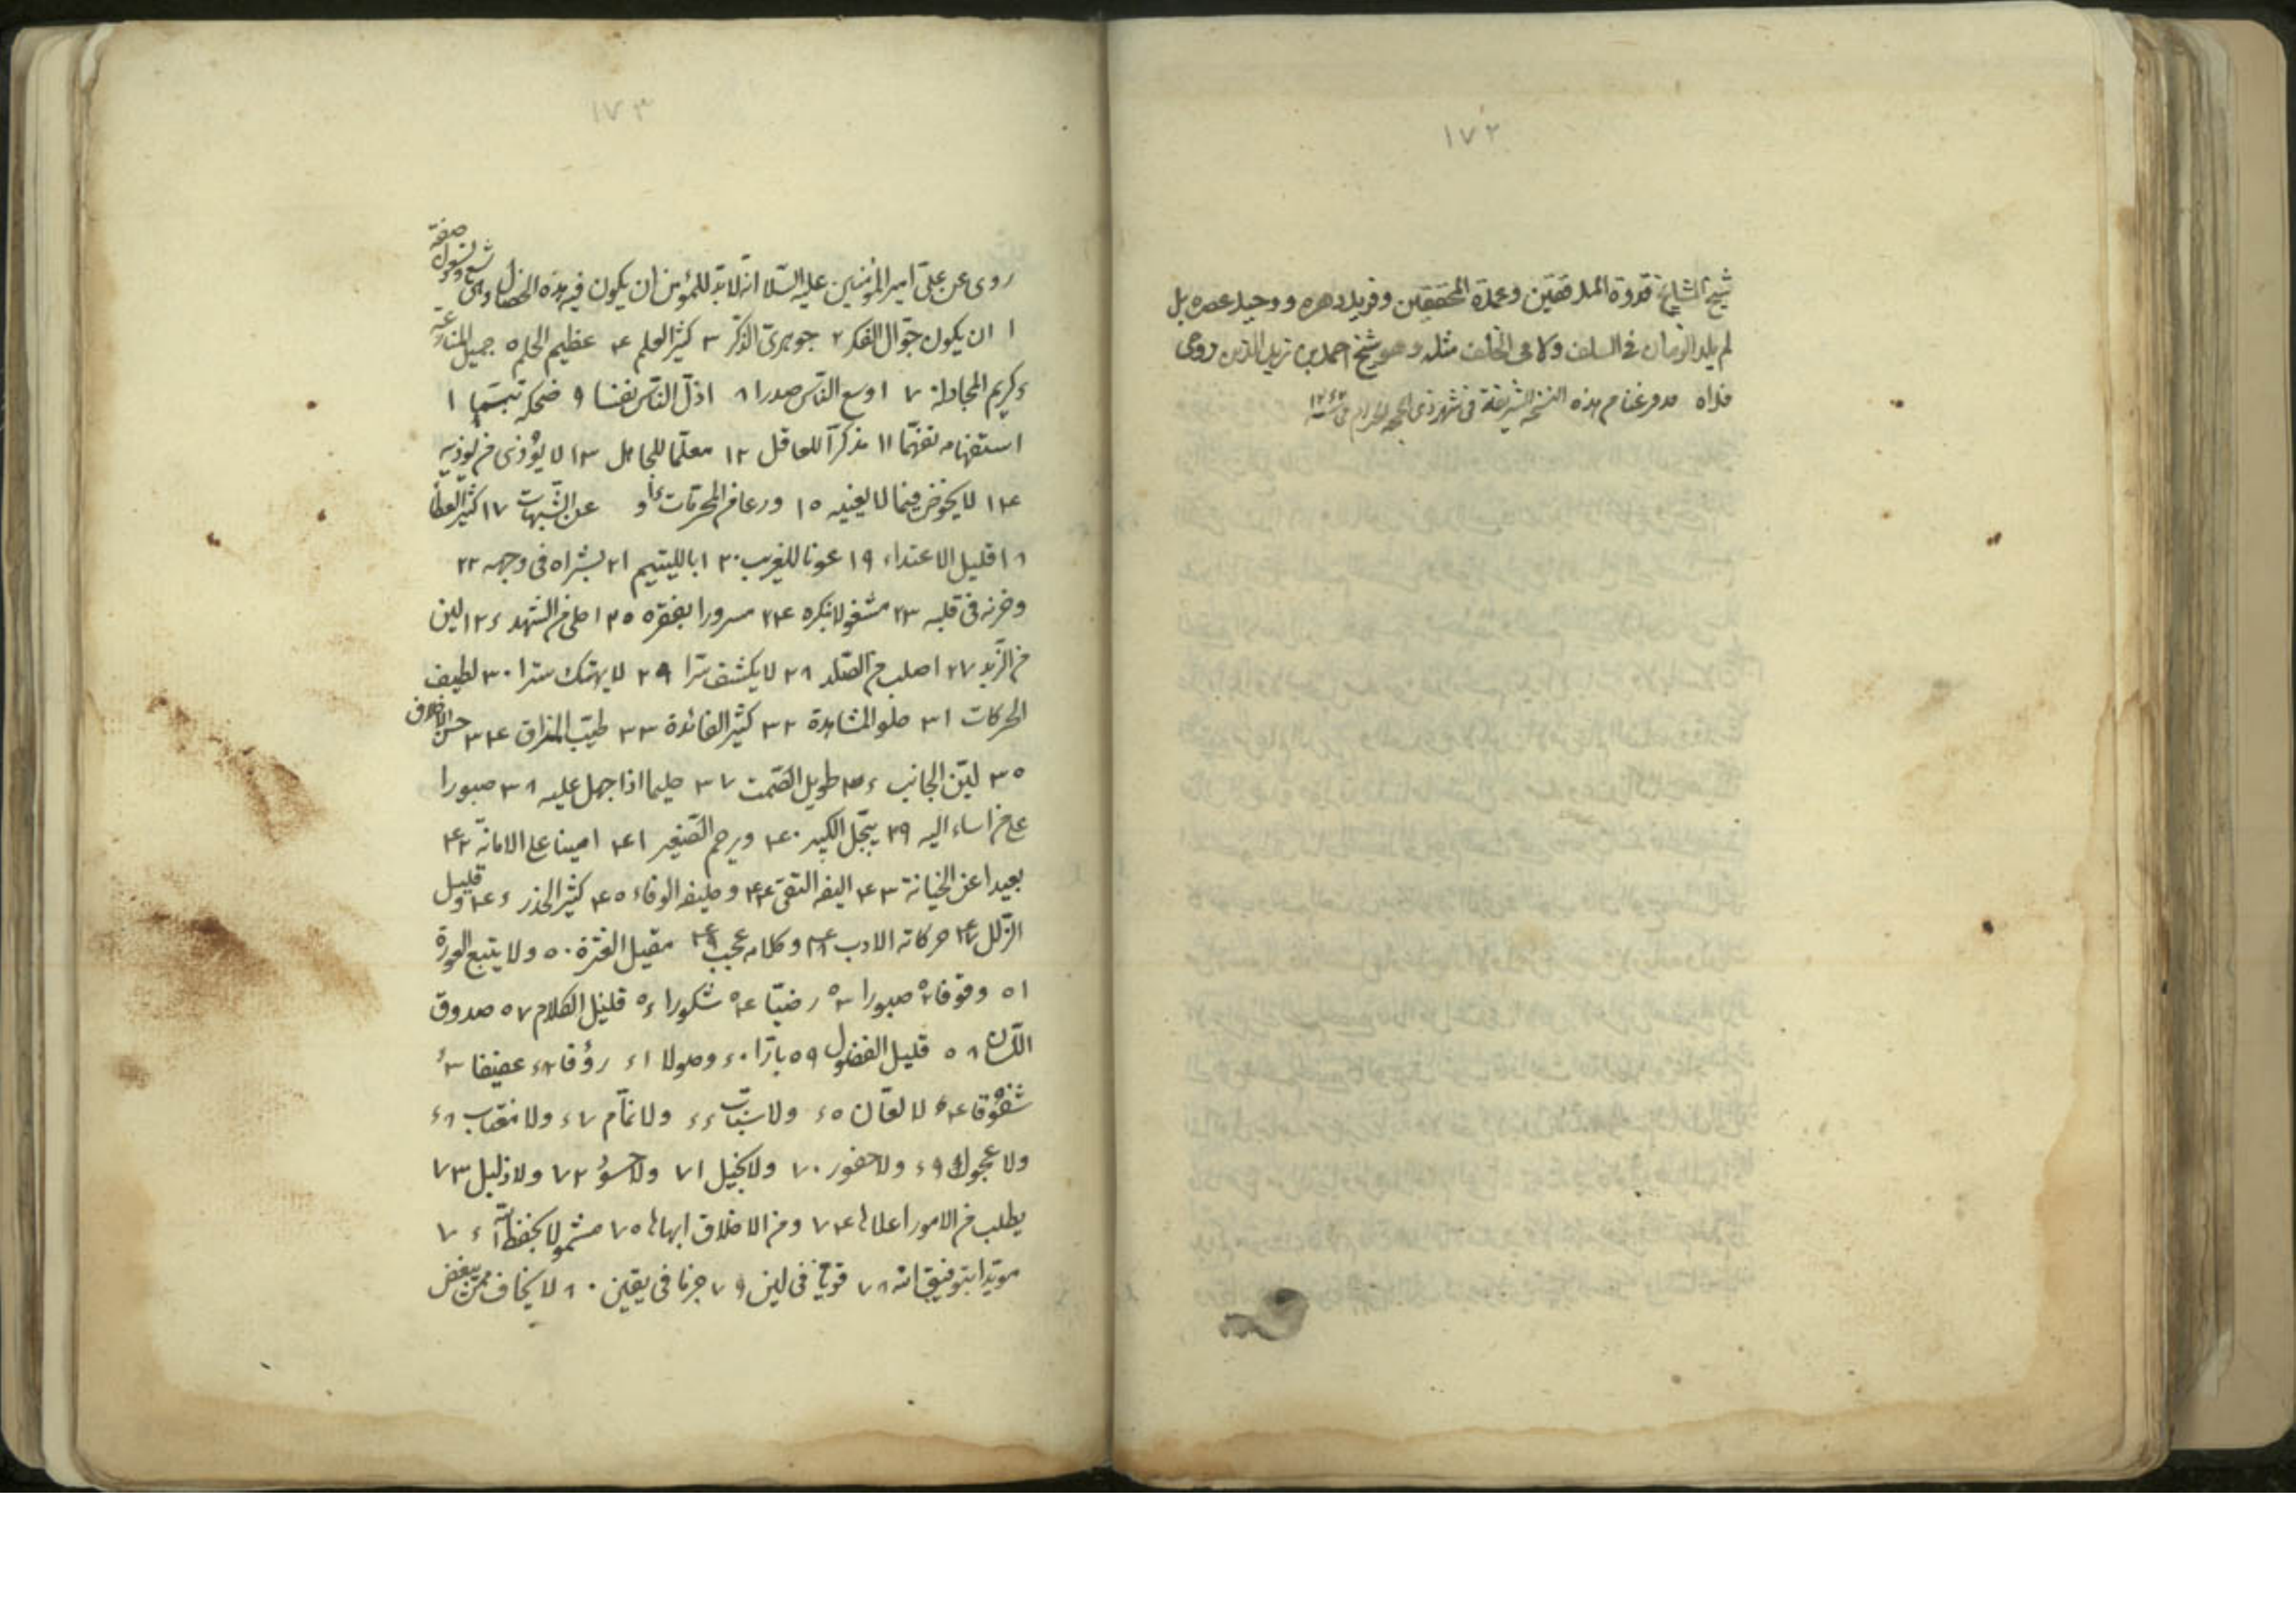 ١٧٢
شيخ المشايخ قدوة المدققين وعمدة المحققين وفريد دهره ووحيد عصره بل
لم يلد الزمان فى السلف ولا فى الخلف مثله وهو شيخ احمد بن زين الدين روحى
فداه هذه النسخة الشريفة فى شهر ذى الحجة الحرام
١٧٣
روى عن على امير المؤمنين عليه السلا انّه لابدّ للمؤمن ان يكون فيه هذه الخصال وهى صفة
١ ان يكون جوّال الفكر ٢ جوهرىّ الذكر ٣ كثير العلم ۴ عظيم الحلم ٥ جميل المنازعة
۶ كريم المجادلة ٧ اوسع النّاس صدرا ٨ اذلّ النّاس نفسا ٩ ضحكه تبسّما ١
استفهامه تفهّما ١١ مذكّرا للعاقل ١٢ معلّما للجاهل ١٣ لا يؤذى من يوذيه
١۴ لا يخوض فيما لا يعنيه ١٥ ورعا من المحرمات و عن الشّبهات ١٧ كثير العطا
١٨ قليل الاعتداء ١٩ عونا للغريب ٢٠ ابا لليتيم ٢١ بشراه فى وجهه ٢٢
وحزنه فى قلبه ٢٣ مشغولا بفكره ٢۴ مسرورا بفقره ٢٥ احلى من الشهد ٢۶ لين
من الزّبد ٢٧ اصلب من الصّلد ٢٨ لا يكشف سرّا ٢٩ لا يهتك سترا ٣٠ لطيف
الحركات ٣١ حلو المشاهدة ٣٢ كثير الفائدة ٣٣ طيّب المذاق ٣۴ حسن الاخلاق
٣٥ ليّن الجانب ٣۶ طويل الصّمت ٣٧ حليما اذا جهل عليه ٣٨ صبورا
على من اساء اليه ٣٩ يبجّل الكبير ۴٠ ويرحم الصّغير ۴١ امينا على الامانة ۴٢
بعيدا عن الخيانة ۴٣ اليفه التقى ۴۴ وحليفه الوفاء ۴٥ كثير الحذر ۴۶ وقليل
الزّلل ۴٧ حركاته الادب ۴٨ وكلامه عجيب ۴٩ مقيل العثرة ٥٠ ولا يتبع العورة
٥١ وقوفا ٥٢ صبورا ٥٣ رضيّا ٥۴ شكورا ٥۶ قليل الكلام ٥٧ صدوق
اللّسان ٥٨ قليل الفضول ٥٩ بارّا ۶٠ وصولا ۶١ رؤفا ۶٢ عفيفا ۶٣
شفوقا ۶۴ لا لعّان ۶٥ ولا سبّاب ۶۶ ولا نمّام ۶٧ ولا مغتاب ۶٨
ولا عجول ۶٩ ولا حقود ٧٠ ولا بخيل ٧١ ولا حسود ٧٢ ولا ذليل ٧٣
يطلب من الامور اعلاها ٧۴ ومن الاخلاق ابهاها ٧٥ مشمولا بحفظ اللّه ٧۶
مويّدا بتوفيق اللّه ٧٨ قويّا فى لين ٧٩ حزما فى يقين ٨٠ لا يحاف ممن يبغض